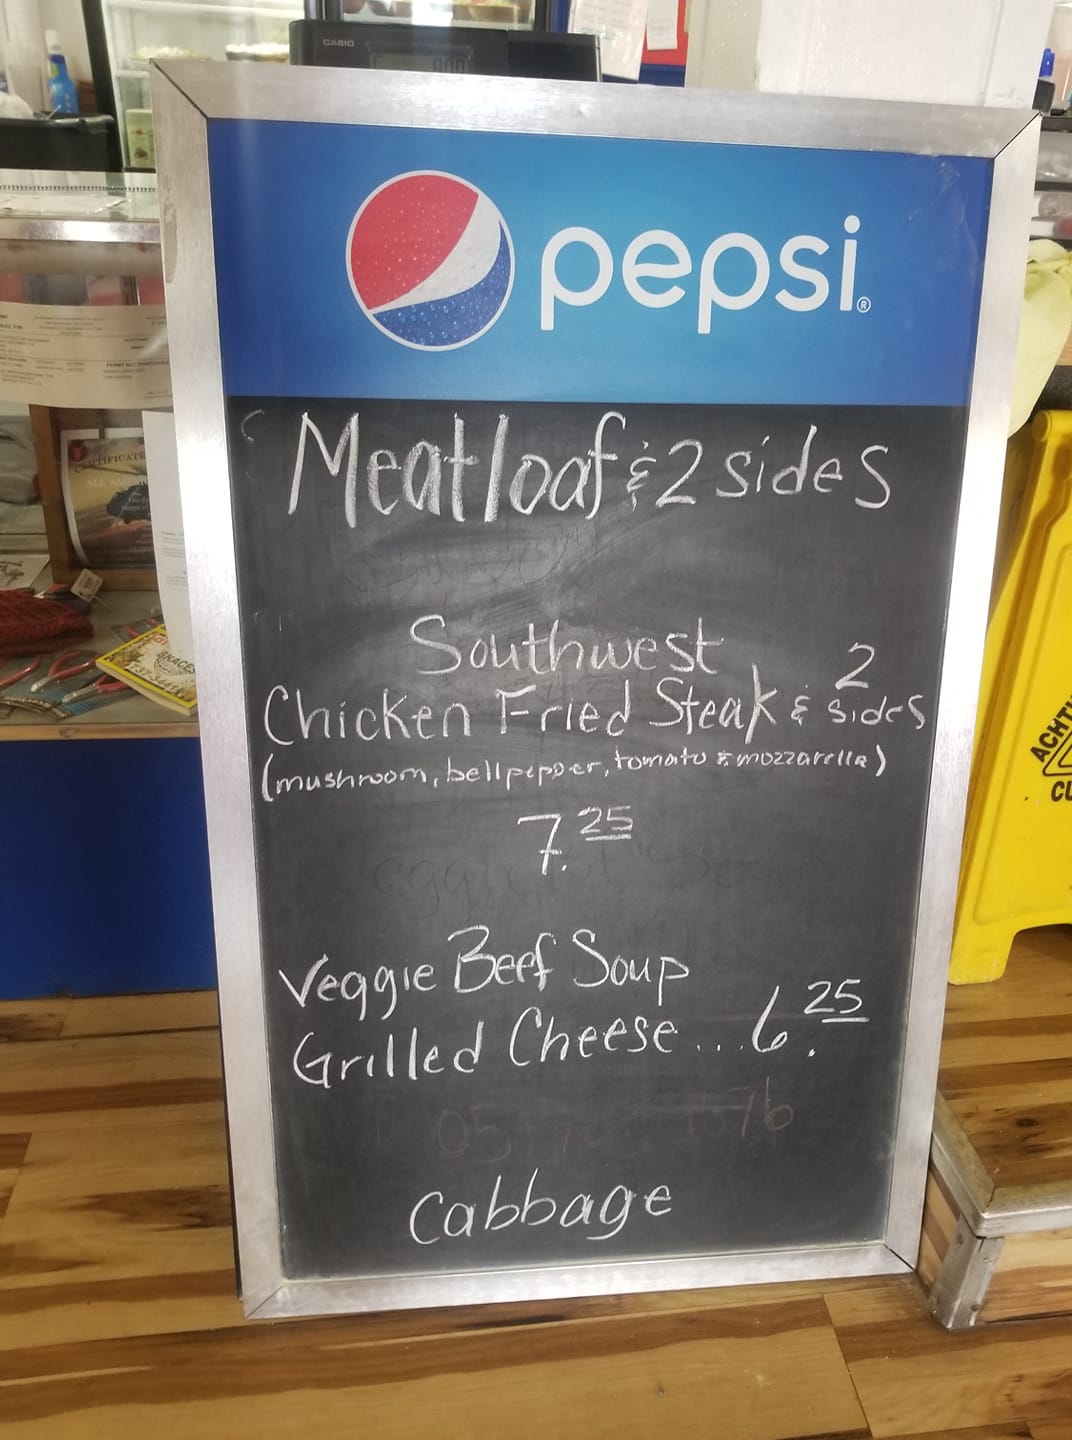 CASIO
pepsi®
Meatloaf & 2 sides
Southwest
Chicken Fried Steak & 2 sides
(mushroom, bellpepper, tomato & mozzarella)
7.25
Veggie Beef Soup
Grilled Cheese... 6.25
Cabbage
CERTIFICATE
ACHTU
CU